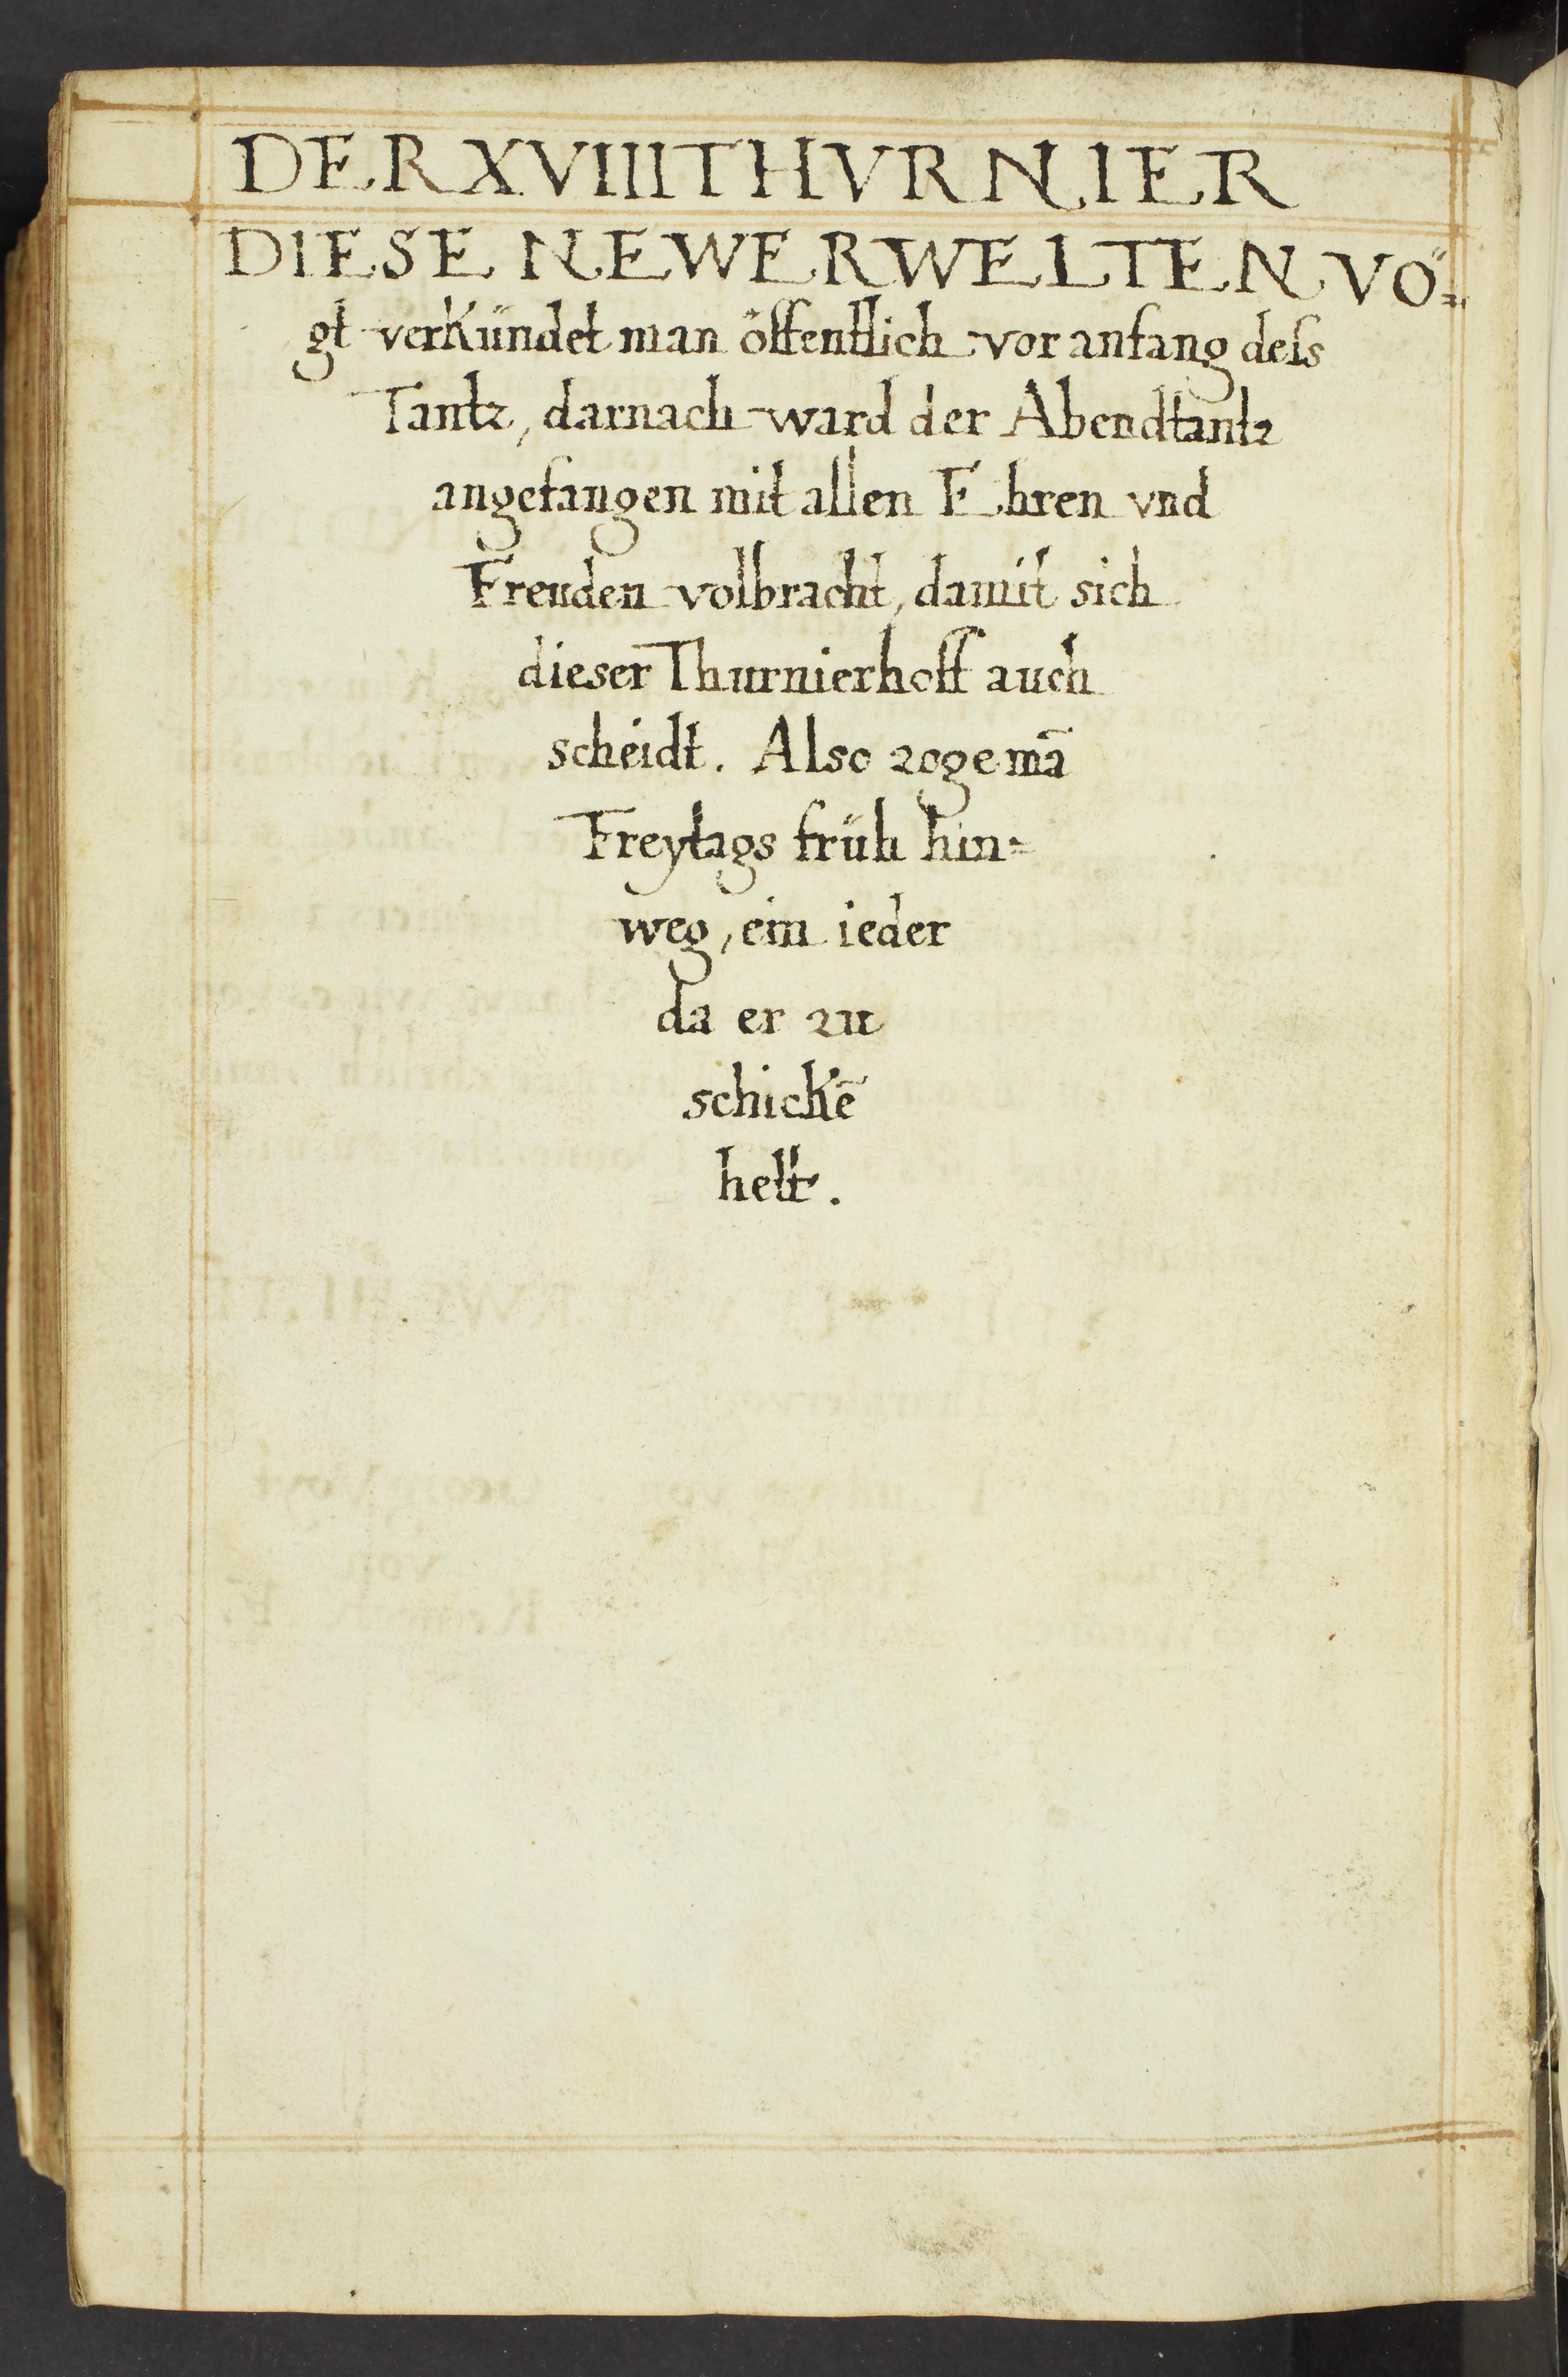 DER XVIIII THVRNIER
DIESE NEWERWELTEN VÖ=
gt verkündet man öffentlich vor anfang deſs
Tantz, darnach ward der Abendtantz
angefangen mit allen Ehren vnd
Freuden volbracht, damit sich
dieser Thurnierhoff auch
scheidt. Also zoge mā
Freytags früh hin=
weg, ein ieder
da er zu
schickē
hett.